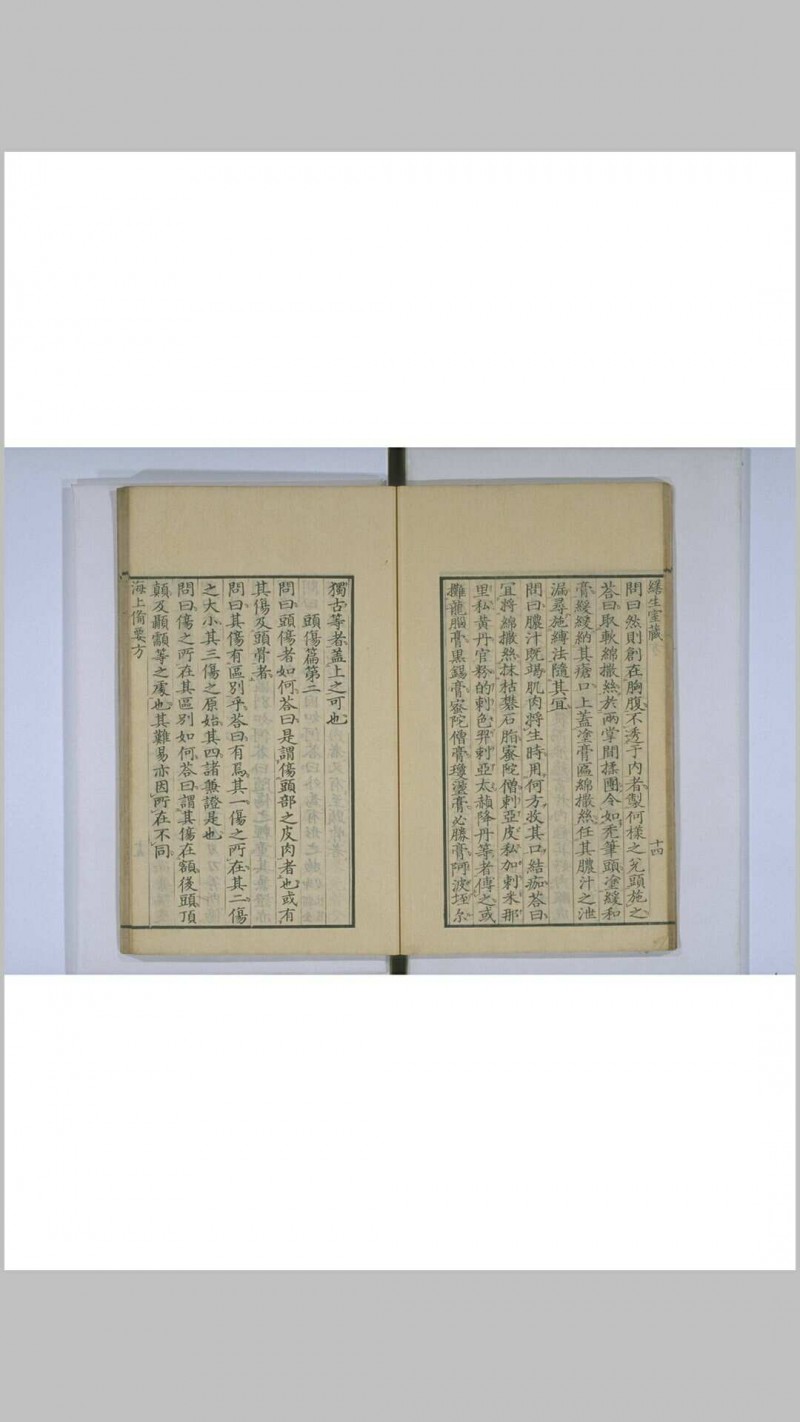 緩生室藏
十四
問曰然則創在胸腹不透于内者製何樣之兊頭施之
荅曰取軟綿撒絲於兩掌間揉團令如禿筆頭塗緩和
膏緩緩納其瘡口上蓋塗膏區綿撒絲任其膿汁之泄
漏尋施縛法隨其宜
問曰膿汁既竭肌肉將生時用何方收其口結痂荅曰
宜將綿撒絲抹枯礬石脂蜜陀僧刺亞皮私加刺米那
里私黄丹官粉的刺色㶊刺亞太赭降丹等者傅之或
攤龍腦膏黒錫膏蜜陀僧膏瓊膏必勝膏阿波垤尓
獨古等者蓋上之可也
頭傷篇第二
問曰頭傷者如何荅曰是謂傷頭部之皮肉者也或有
其傷及頭骨者
問曰其傷有區別乎荅曰有焉其一傷之所在其二傷
之大小其三傷之原始其四諸兼證是也
問曰傷之所在其區別如何荅曰謂其傷在額後頭頂
顛及顳顬等之處也其難易亦因所在不同
海上備要方